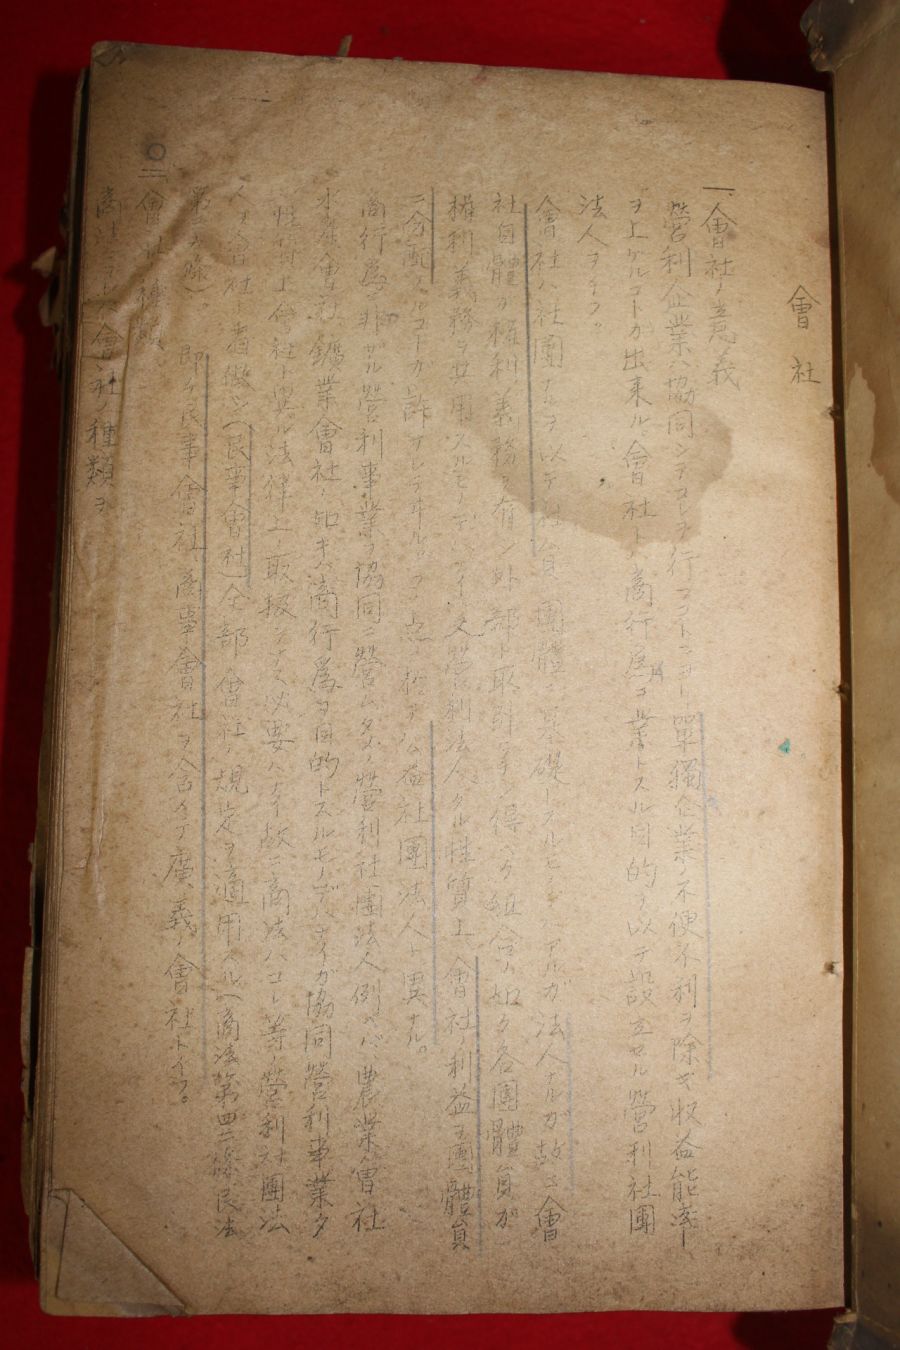 會社
一、會社ノ意義
營利企業ハ協同シテコレヲ行フコトニヨリ單獨企業ノ不便不利ヲ除ギ収益能率
ヲ上ゲルコトガ出来ル會社トハ商行爲ヲ業トスル目的ヲ以テ設立セル營利社團
法人ヲイフ。
會社ハ社團ナルヲ以テ社員 團體ニ基礎 スル アルガ法人ナルガ故ニ會
社自體ガ權利義務ヲ有シ外部ト取引 得ベク組合ノ如ク各團體員ガ
權利義務ヲ 用スルモノデハナイ又營利法人タル性質上會社ノ利益ヲ團體員
ニ分配 ルコトガ許サレテヰル。コノ点ニ於テ公益社團法人ト異ナル。
商行爲ニ非ザル營利事業ヲ協同ニ營ムタメノ營利社團法人例ヘバ、農業會社
水産會社、鑛業會社ノ如キハ商行爲ヲ目的トスルモノデハナイガ協同營利事業タ
性質上會社ト異ル法律上ノ取扱ヲナス必要ハナイ故ニ商法ハコレ等ノ營利社團法
人ヲ會社ト看做シ(民事會社)全部 會社ノ規定ヲ適用スル(商法第四二條民法
第 條)。即ケ民事會社、商事會社ヲ含メテ廣義ノ會社トイフ。
二 會社ノ種類
商法ニヨレ 會社ノ種類ヲ